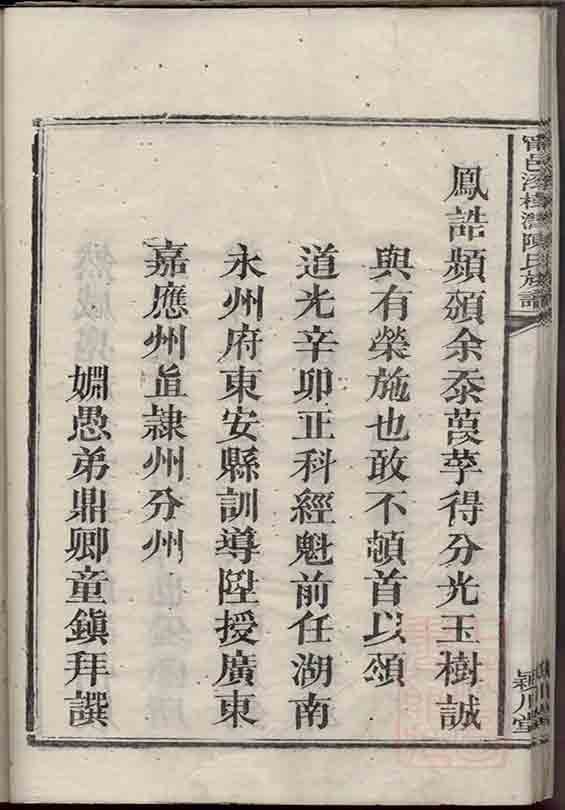 鳳誥頻頒余忝葭莩得分光玉樹誠
與有榮施也敢不頓首以頌
道光辛卯正科經魁前任湖南
永州府東安縣訓導陞授廣東
嘉應州直隸州分州
姻愚弟鼎卿童鎭拜譔
甯邑 陳氏族譜
潁川堂